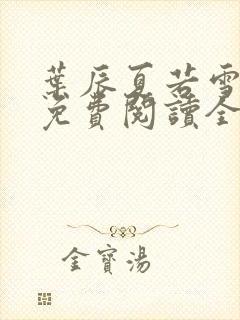 葉辰夏若雪
免費閱讀全
金寶湯